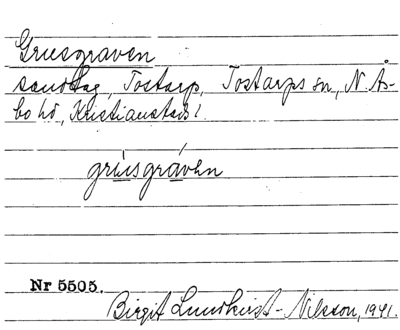 Gruesgraven
sandtag, Tostarp, Tostarps sn, N. Ås-
bo hd, Kristianstads l.
grúesgráven
Nr 5505.
Birgit Lundkvist-Nilsson, 1941.